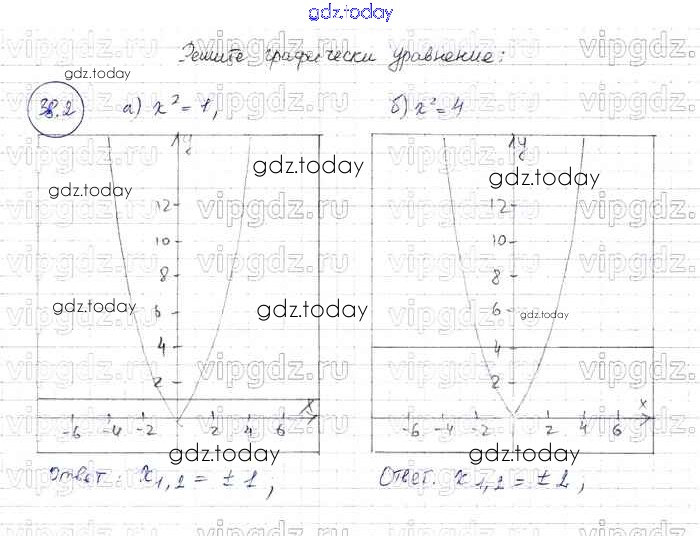 gdz.today
Решите графически уравнение:
gdz.today
38.2 а) x² = 1, б) x² = 4
y y
gdz.today gdz.today
gdz.today
12 12
10 10
8 8
gdz.today gdz.today gdz.today
6 6
4 4
2 2
x x
-6 -4 -2 2 4 6 -6 -4 -2 2 4 6
gdz.today gdz.today
Ответ: x₁,₂ = ±1; Ответ: x₁,₂ = ±2;
vipgdz.ru